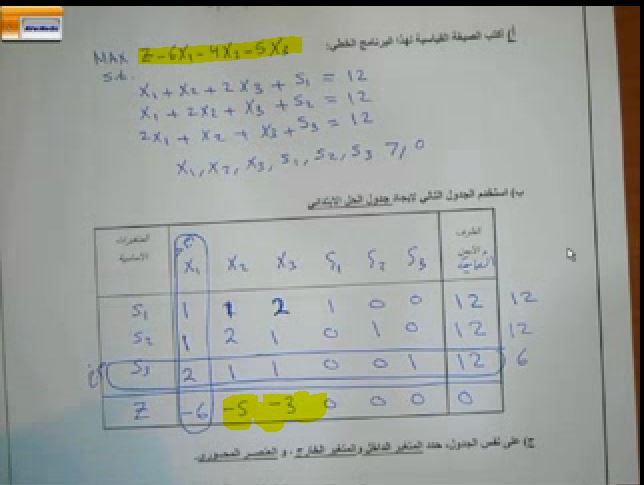 أ) أكتب الصيغة القياسية لهذا البرنامج الخطي:
MAX Z-6X₁-4X₂-5X₃
s.t.
X₁ + X₂ + 2X₃ + S₁ = 12
X₁ + 2X₂ + X₃ + S₂ = 12
2X₁ + X₂ + X₃ + S₃ = 12
X₁, X₂, X₃, S₁, S₂, S₃ 7, 0
ب) استخدم الجدول التالي لإيجاد جدول الحل الابتدائي
المتغيرات الأساسية X₁ X₂ X₃ S₁ S₂ S₃ الطرف الأيمن
S₁ 1 1 2 1 0 0 12 12
S₂ 1 2 1 0 1 0 12 12
S₃ 2 1 1 0 0 1 12 6
Z -6 -5 -3 0 0 0 0
ج) على نفس الجدول، حدد المتغير الداخل والمتغير الخارج ، و العنصر المحوري.